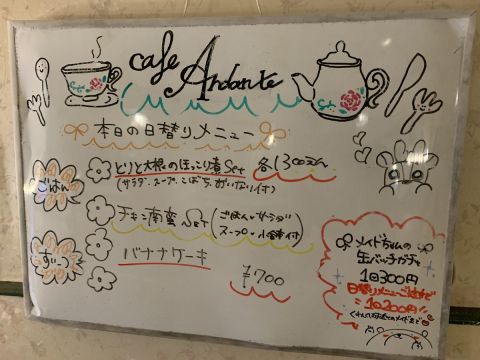 cafe Andante
本日の日替りメニュー
ごはん
とりと大根のほっこり煮Set 各1300えん
(サラダ・スープ・こばち・おいなり付)
チキン南蛮 Set (ごはん・サラダ
スープ・小鉢付)
バナナケーキ
¥700
メイドちゃんの
缶バッチガチャ
1回300円
日替りメニューご注文で
1回200円